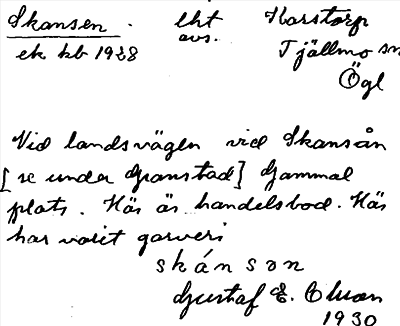 Skansen. lht Harstorp
ek kb 1928 avs. Tjällmo sn
Ögl
Vid landsvägen vid Skansån
[se under Granstad] Gammal
plats. Här är handelsbod. Här
har varit garveri
skánsən
Gustaf E.
1930